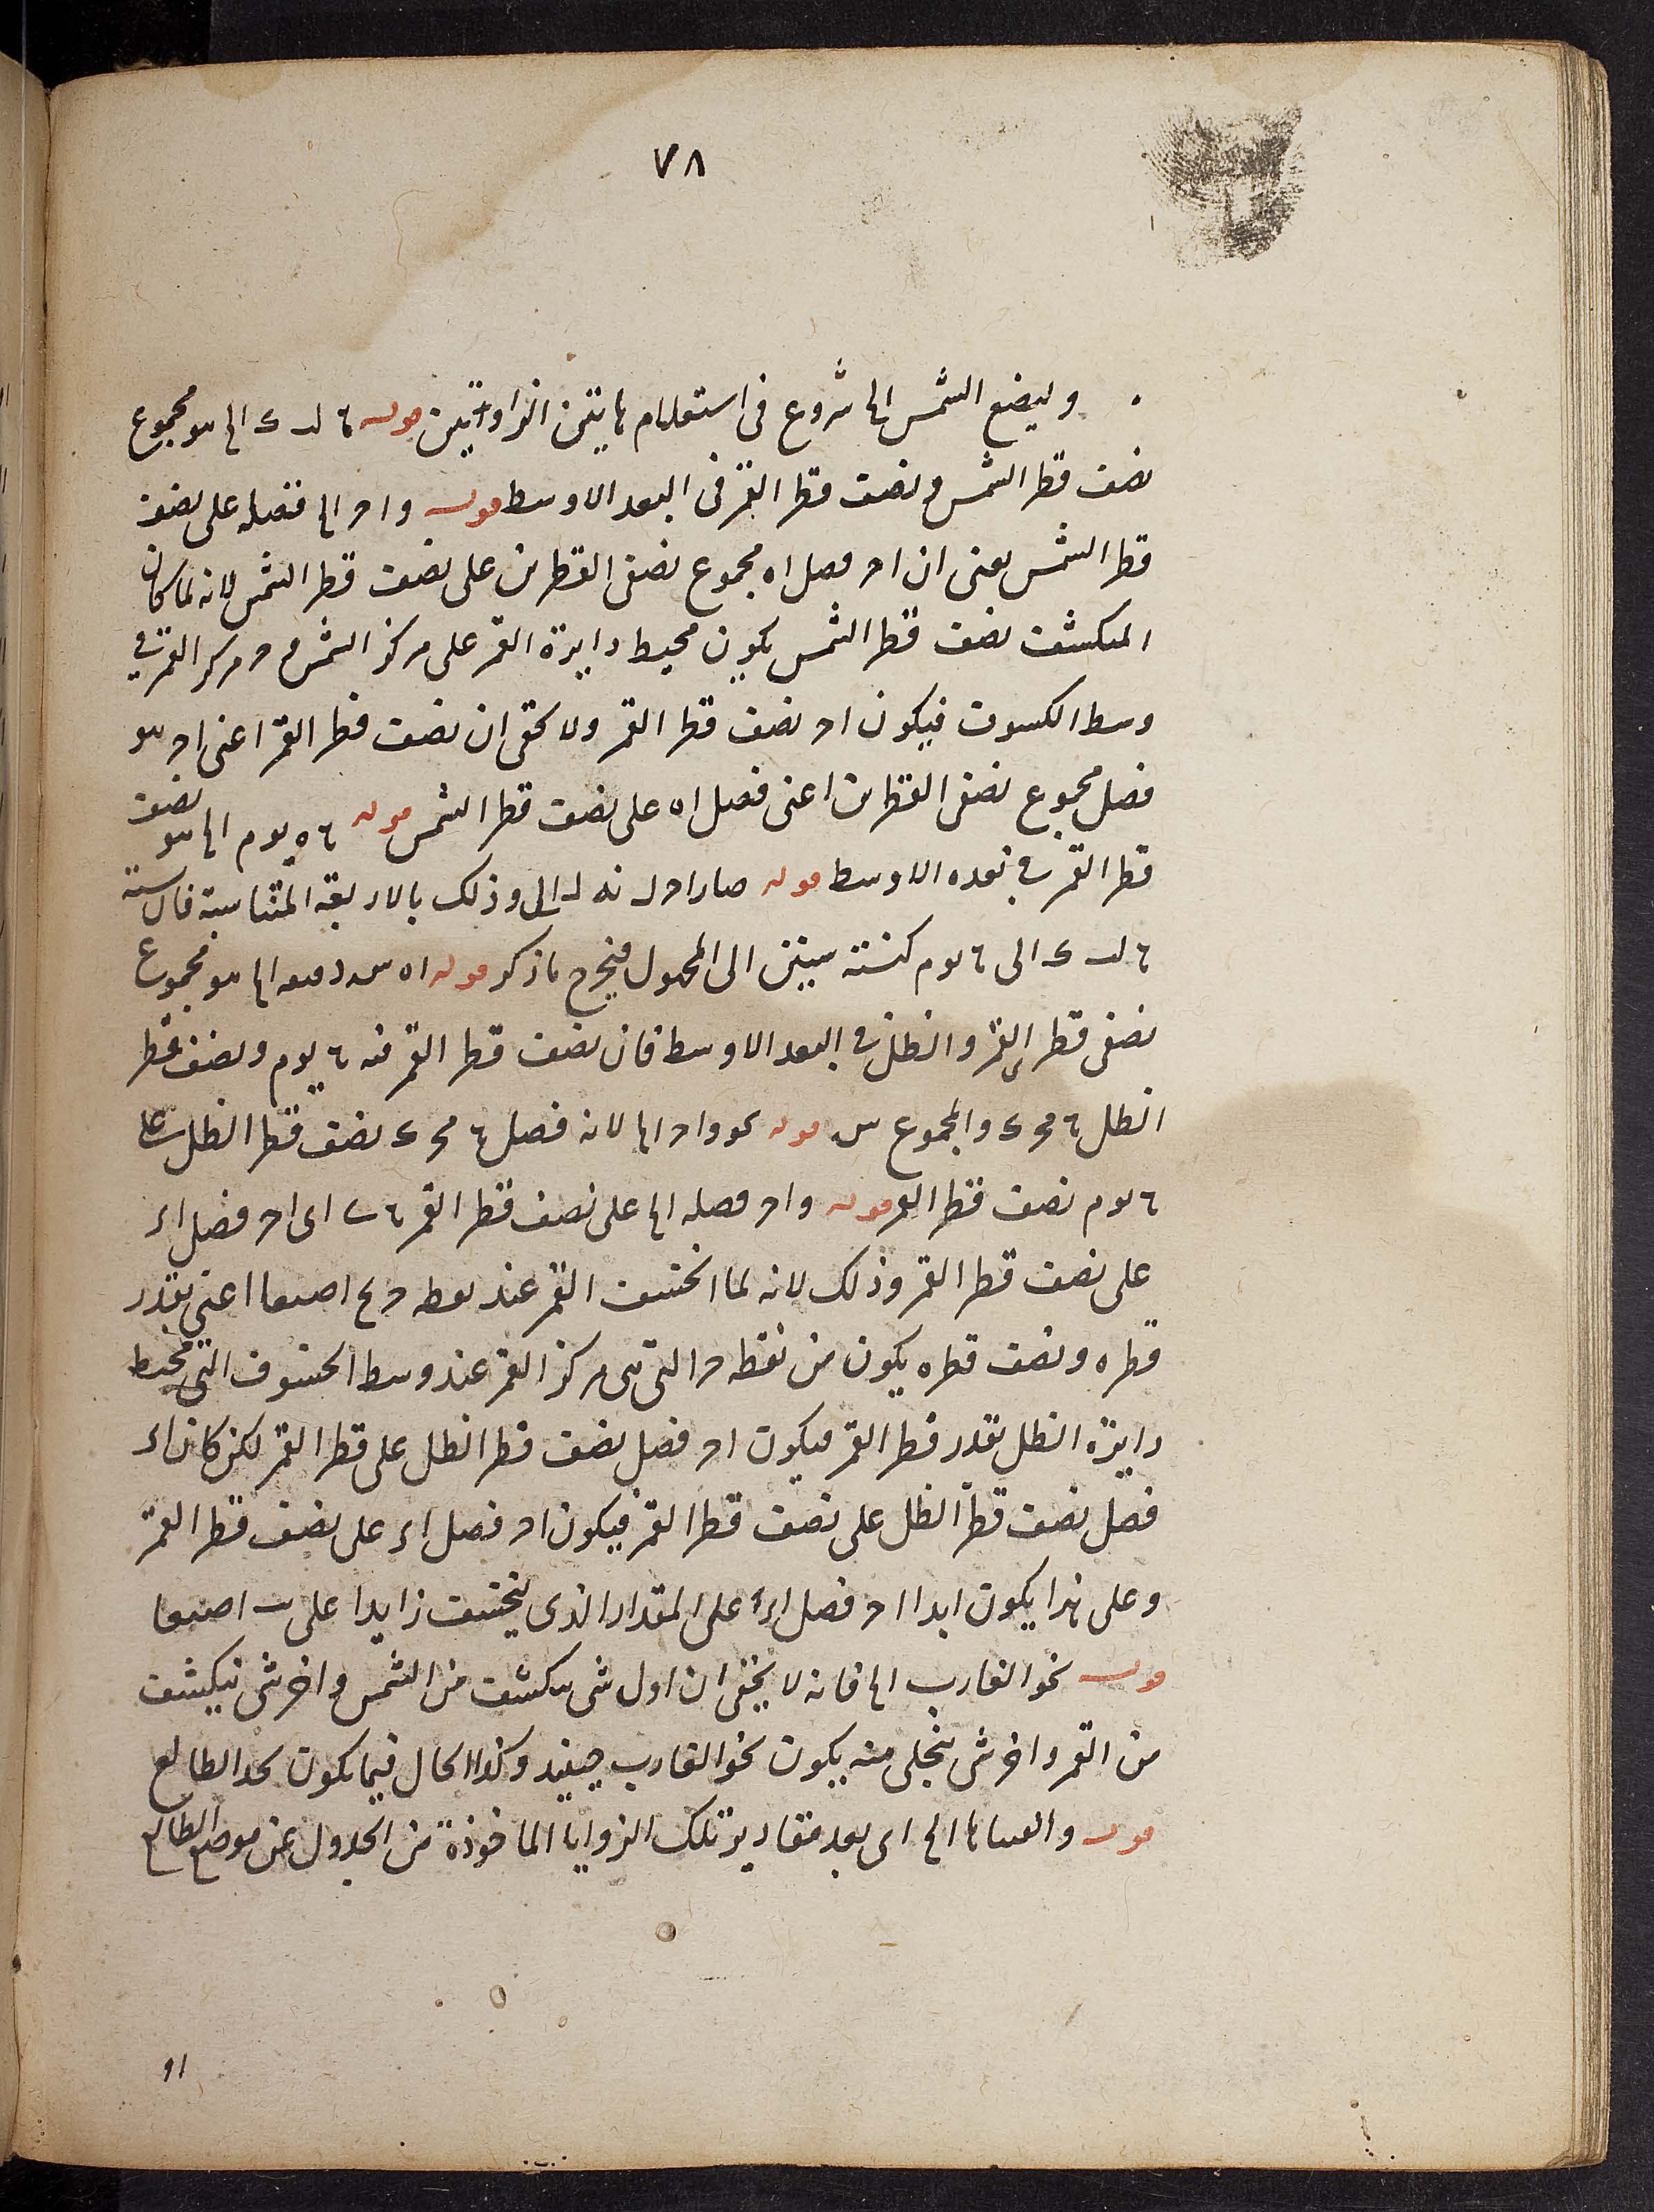 ٧٨
وليضع الشمس الخ شروع في استعلام هاتين الزاويتين قوله ٦ لب ك الخ هو مجموع
نصف قطر الشمس ونصف قطر القمر في البعد الاوسط قوله واح الخ فضله على نصف
قطر الشمس يعنى ان اح فضل اه مجموع نصفى القطرين على نصف قطر الشمس لانه لما كان
المنكسف نصف قطر الشمس يكون محيط دايرة القمر على مركز الشمس و ح مركز القمر في
وسط الكسوف فيكون اح نصف قطر القمر ولا يخفى ان نصف قطر القمر اعنى اح هو
فضل مجموع نصفى القطرين اعنى فضل اه على نصف قطر الشمس قوله ٦ه يوم الخ هو نصف
قطر القمر في بعده الاوسط قوله صار اح له نه له الخ وذلك بالاربعة المتناسبة فان نسبة
٦ لب ك الى ٦ يوم كنسبة ستين الى المجهول فيخرج ما ذكر قوله اه الخ هو مجموع
نصفى قطرى القمر والظل في البعد الاوسط فان نصف قطر القمر فيه ٦ يوم ونصف قطر
الظل ٦ مح ك والمجموع س قوله واح الخ لانه فضل ٦ مح ك نصف قطر الظل على
٦ يوم نصف قطر القمر قوله واح فضله الخ على نصف قطر القمر ٦ اى اح فضل اء
على نصف قطر القمر وذلك لانه لما انخسف القمر عند نقطة ح يح اصبعا اعنى بقدر
قطره ونصف قطره يكون من نقطة ح التى هى مركز القمر عند وسط الخسوف التى محيط
دايرة الظل بقدر قطر القمر فيكون اح فضل نصف قطر الظل على قطر القمر لكن كان اء
فضل نصف قطر الظل على نصف قطر القمر فيكون اح فضل اء على نصف قطر القمر
وعلى هذا يكون ابدا اح فضل اء على المقدار الذى ينخسف زايدا على اصبعا
قوله نحو الغارب الخ فانه لا يخفى ان اول شى ينكسف من الشمس واخر شى ينكسف
من القمر واخر شى ينجلى منه يكون نحو الغارب حينئذ وكذا الحال فيما يكون نحو الطالع
قوله والقيناها الخ اى بعد مقادير تلك الزوايا الماخوذة من الجدول عن موضع الطالع
91